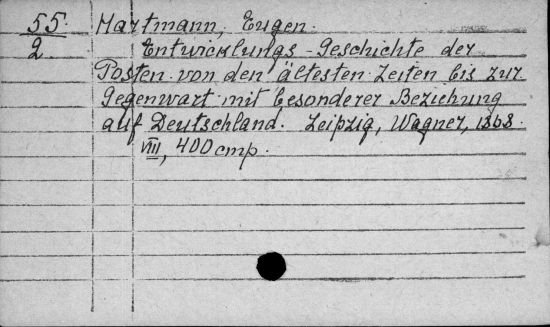 55. Hartmann, Eugen.
2. Entwicklungs-Geschichte der
Posten von den ältesten Zeiten bis zur
Gegenwart mit besonderer Beziehung
auf Deutschland. Leipzig, Wagner, 1868.
VIII, 400 cmp.